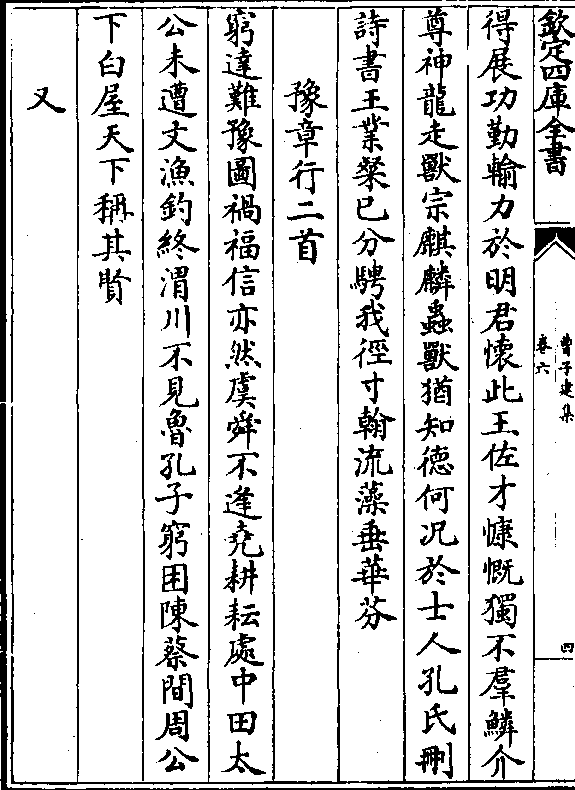 欽定四庫全書
曹子建集
卷六
四
得展功勤輸力於明君懷此王佐才慷慨獨不羣鱗介
尊神龍走獸宗麒麟蟲獸猶知德何况於士人孔氏刪
詩書王業粲已分騁我徑寸翰流藻垂華芬
豫章行二首
窮達難豫圖禍福信亦然虞舜不逢堯耕耘處中田太
公未遭文漁釣終渭川不見魯孔子窮困陳蔡間周公
下白屋天下稱其賢
又